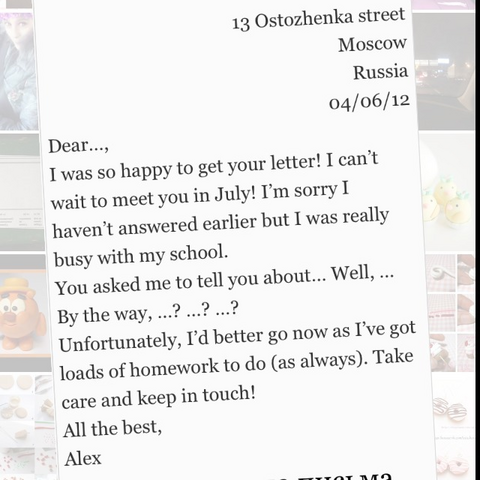 13 Ostozhenka street
Moscow
Russia
04/06/12
Dear...,
I was so happy to get your letter! I can't
wait to meet you in July! I'm sorry I
haven't answered earlier but I was really
busy with my school.
You asked me to tell you about... Well, ...
By the way, ...? ...? ...?
Unfortunately, I'd better go now as I've got
loads of homework to do (as always). Take
care and keep in touch!
All the best,
Alex